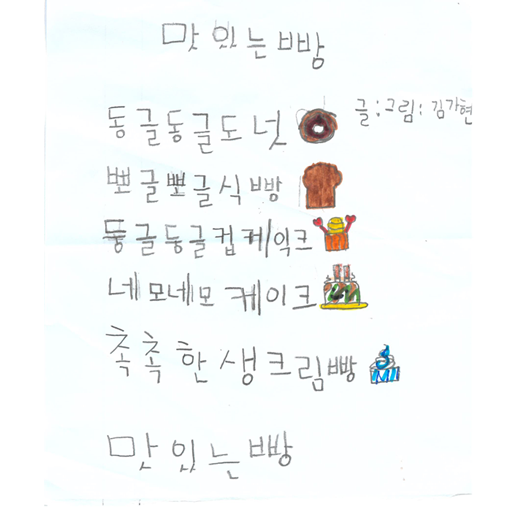 맛있는빵
글:그림: 김가현
동글동글도넛
뽀글뽀글식빵
둥글둥글컵케익크
네모네모 케이크
촉촉한생크림빵
맛있는빵